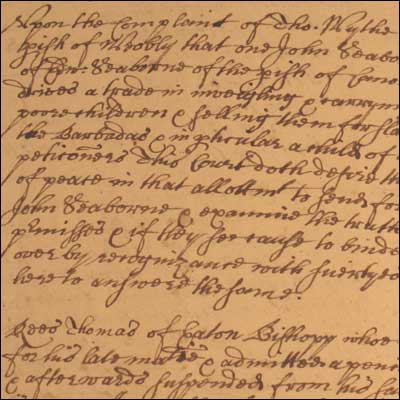 Upon the Complaint of Tho. Wythe
pish of Weobly that one John Seabo
of Seaborne of the pish of Cano
drives a trade in inveigling & carryin
poore children & selling them for sla
the Barbadas & in pticular a child of
peticoners This Court doth desire th
of peace in that allottmt to send for
John Seaborne & examine the truth
pmisses & if they see cause to binde
over by recognizance with suertyes
here to answere the same.
Rees Thomas of Eaton Bishopp whoe
for his late & admitted a penc
& afterwards suspended from his sa